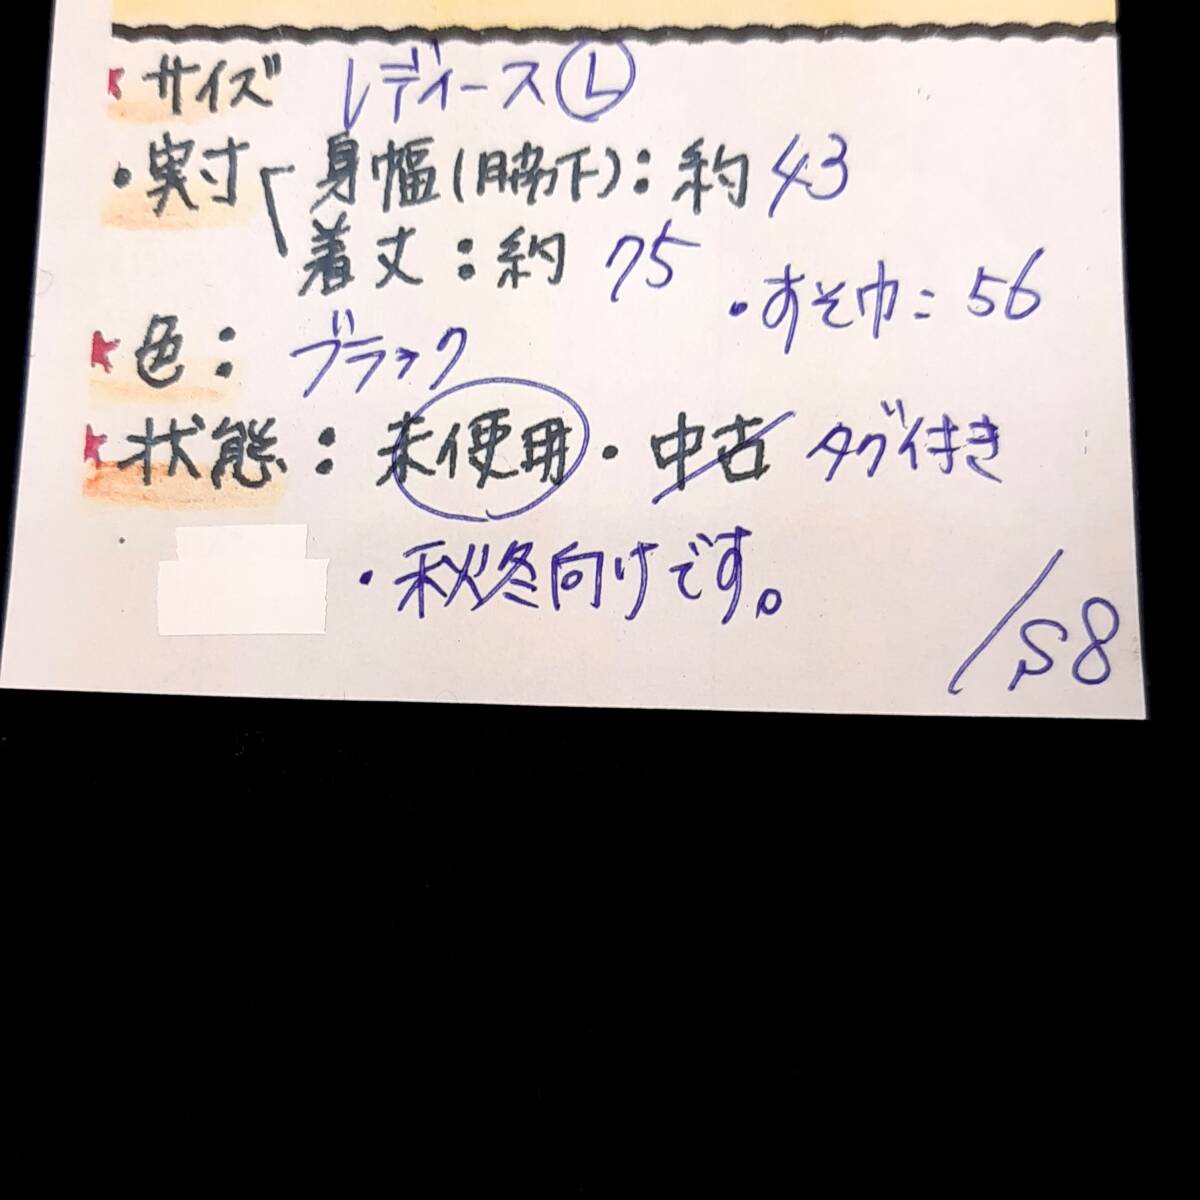 ★サイズ レディースⓁ
・実寸 身幅(脇下):約43
着丈:約75
・すそ巾:56
★色: ブラック
★状態:未使用・中古 タグ付き
・秋冬向けです。
/S8